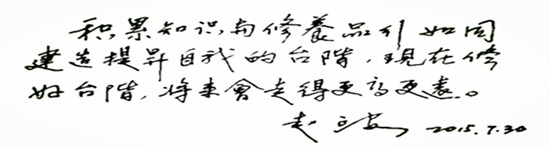 积累知识与修養品行如同
建造提昇自我的台階，現在修
好台階，将来會走得更高更遠。
赵 2015.7.30